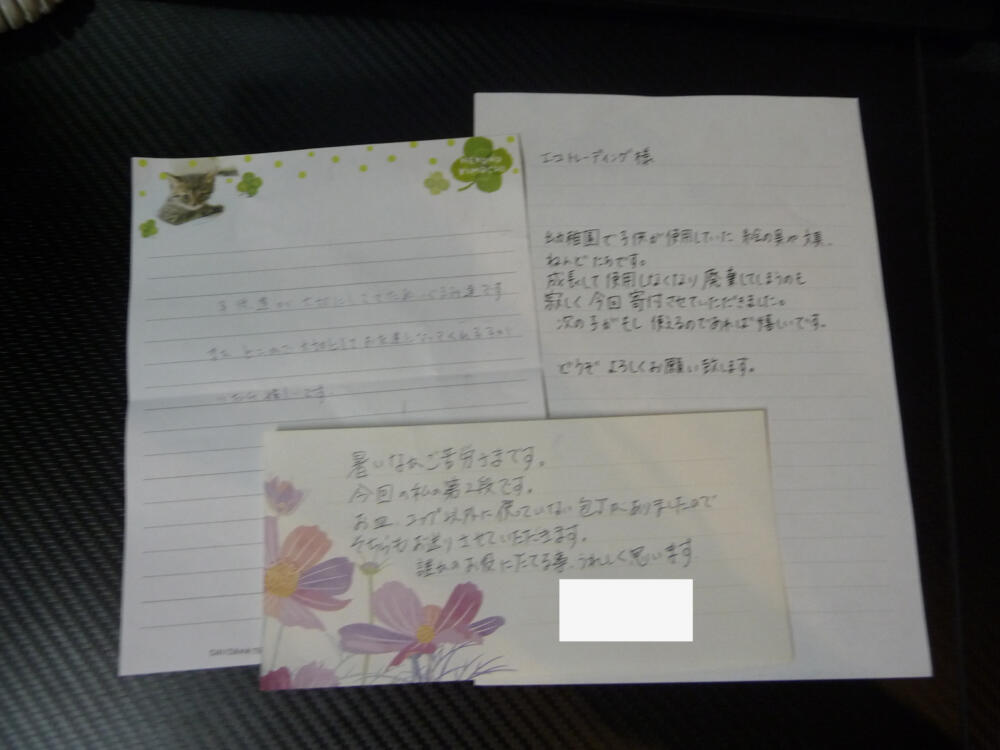 大切にして
です
また
大切にしてお友達になってくれる
嬉しいです
エコトレーディング様
幼稚園で子供が使用していた
ねんどたちです。
成長して使用しなくなり廃棄してしまうのも
寂しく今回寄付させていただきました。
次の子がもし使えるのであれば嬉しいです。
どうぞよろしくお願い致します。
暑いなかご苦労さまです。
今回の私の第2段です。
お皿、コップ以外に使っていない包丁がありましたので
そちらもお送りさせていただきます。
誰かのお役にたてる事、うれしく思います